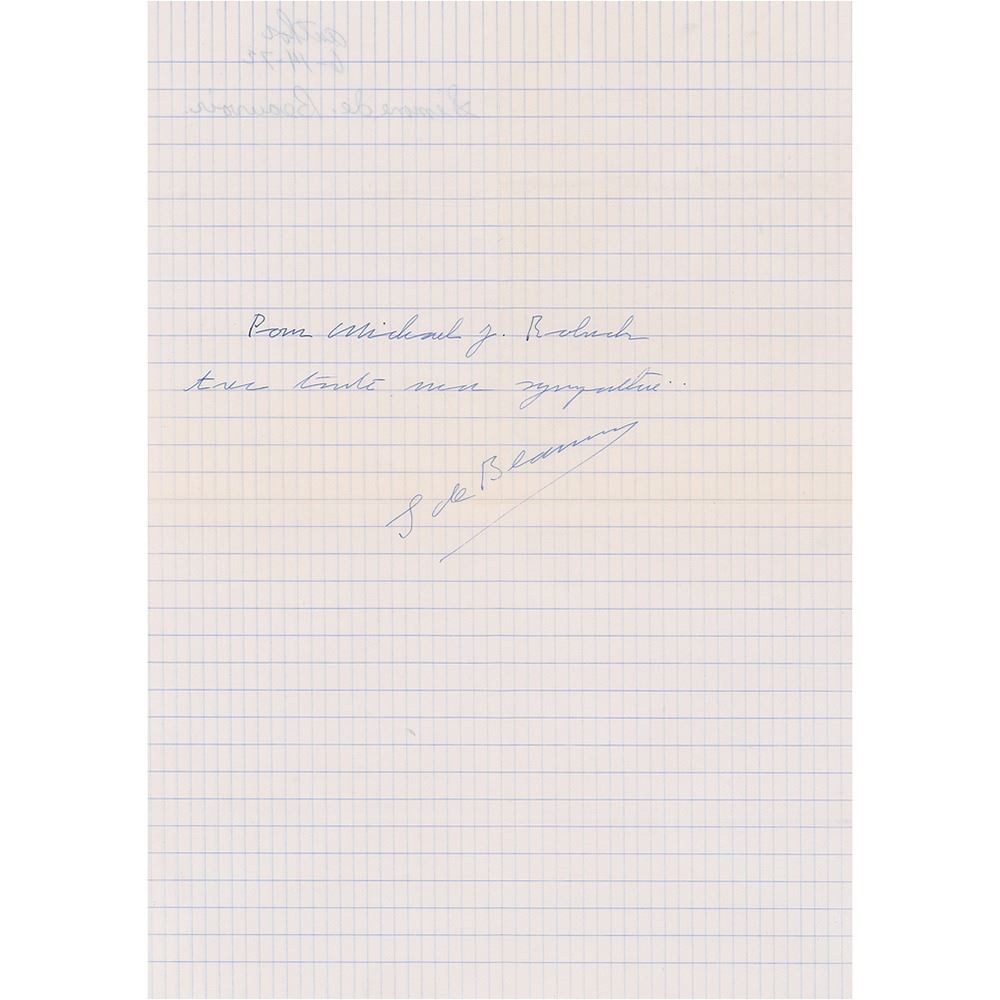 author
6-14-72
Simone de Beauvoir
Pour Michael J.
avec toute ma sympathie..
S de Beauvoir